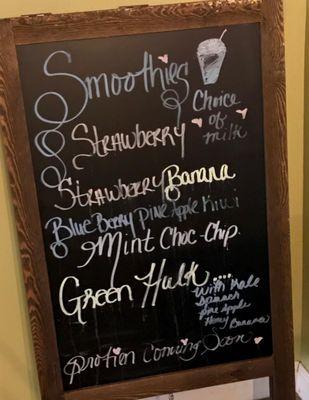 Smoothies
Choice
of
milk
Strawberry
Strawberry Banana
Blue Berry Pine Apple Kiwi
Mint Choc-Chip.
Green Hulk ....
with Kale
Spinach
Pine Apple
Honey Banana
Protien Coming Soon